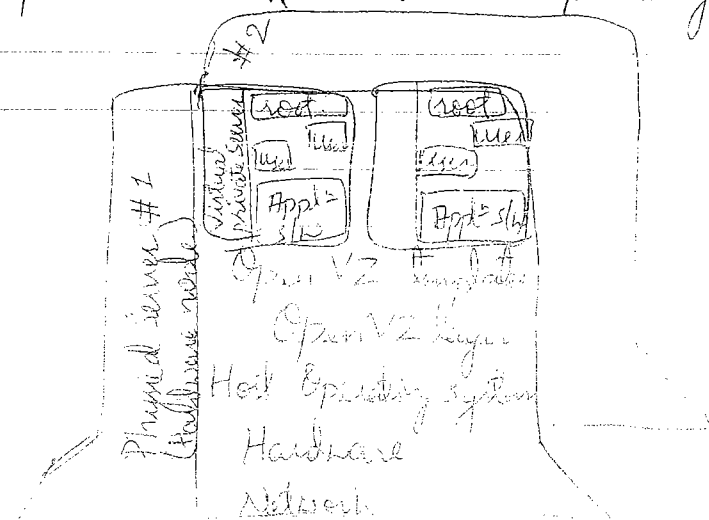 #2
Physical server #1
(Hardware node)
Virtual
private server
root
User
User
Appln
s/w
root
User
User
Appln s/w
Open VZ templates
Open VZ layer
Host Operating system
Hardware
Network